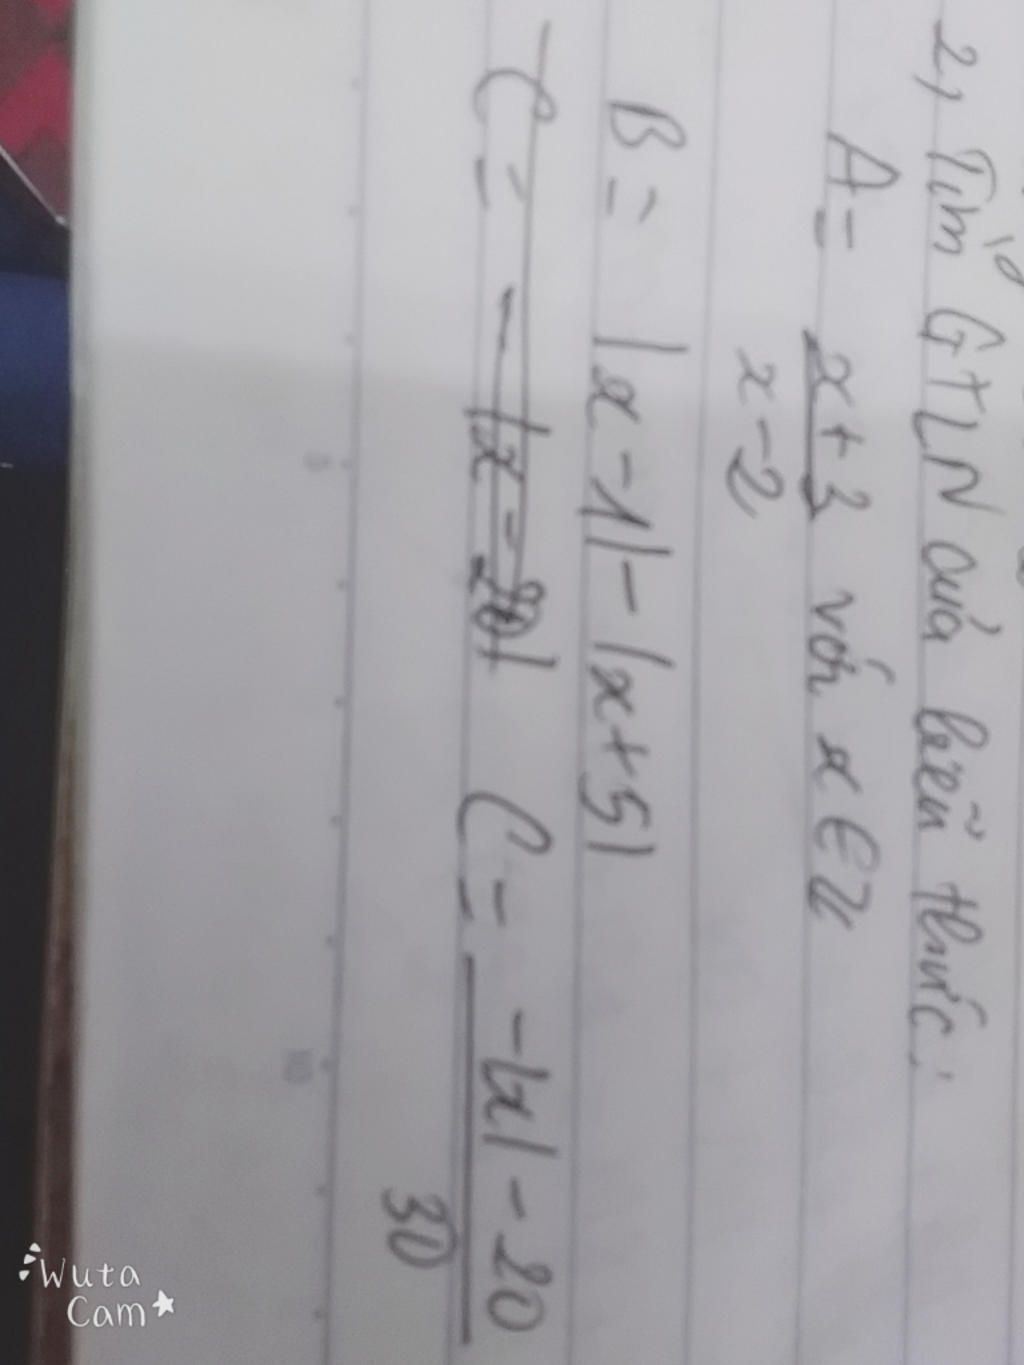 2, Tìm GTLN của biểu thức:
A = x+3 với x ∈ Z
x-2
B = |x-1| - |x+5|
C = - |x - | C = -|x| - 20
30
5
10
Wuta
Cam